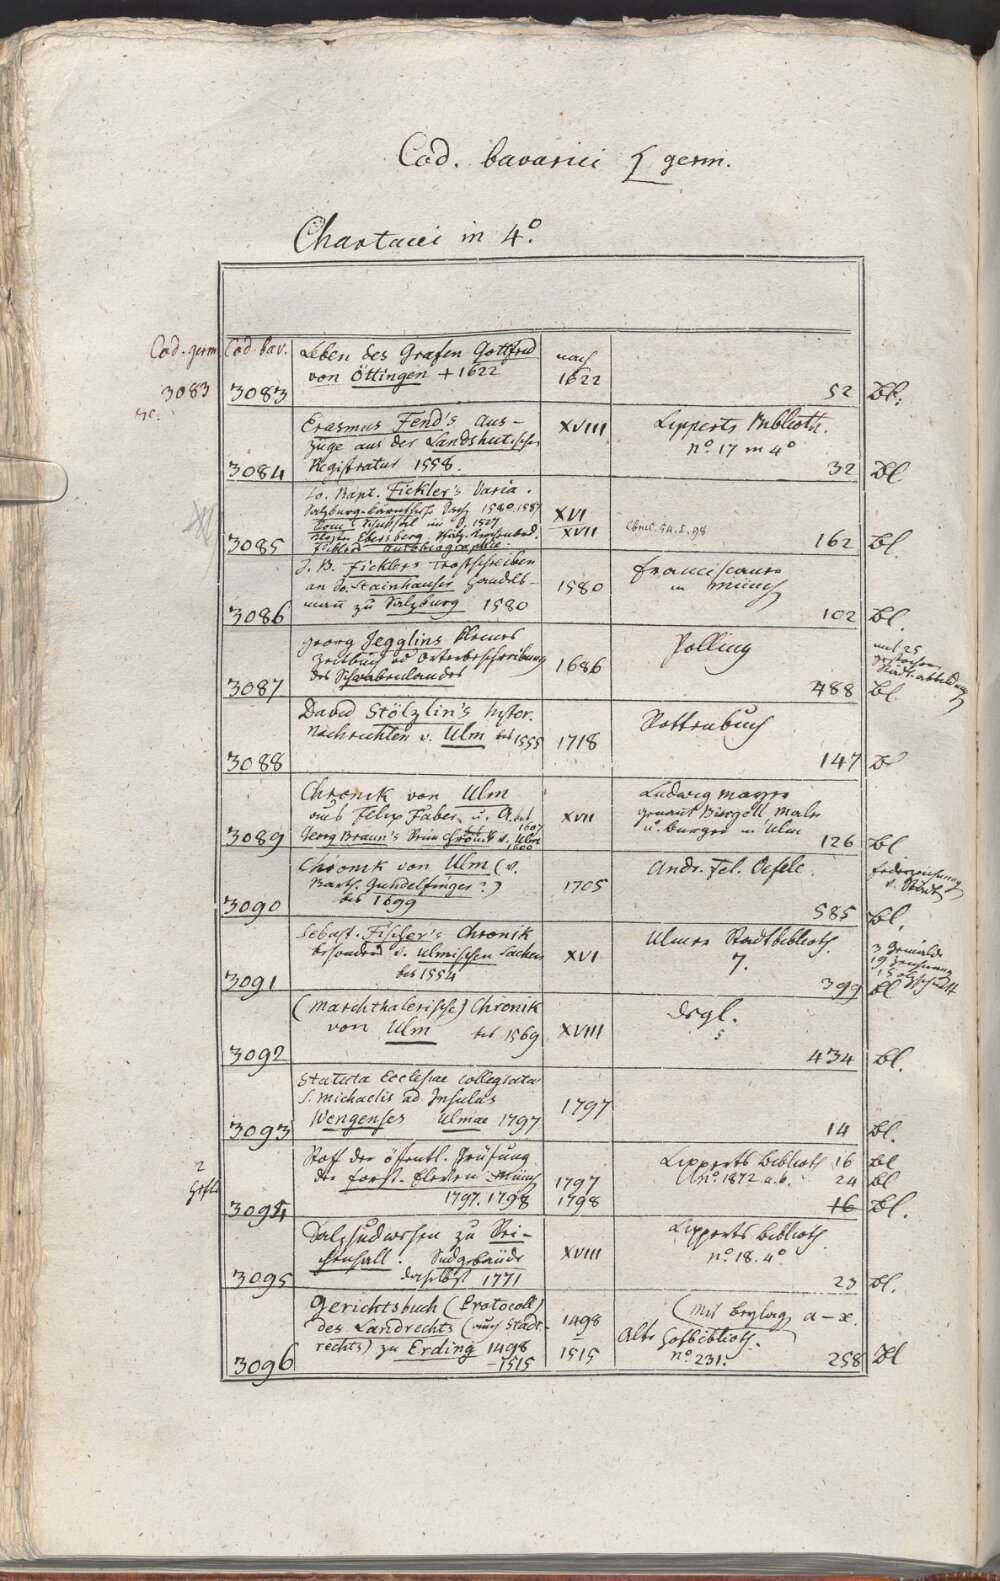 Cod. bavarici germ.
Chartacei in 4º.
Cod. germ
3083
Cod. bav.
3083
Leben des Grafen Gottfried
von Öttingen +1622
nach
1622
52 Bl.
3084
Erasmus Fend's Aus-
züge aus der Landshutischen
Registratur 1558.
XVIII
Lipperts Biblioth.
nº 17 in 4º
32 Bl
3085
Jo. Bapt. Fickler's Varia.
1580. 1587
1527
Ebersberg.
Ficklers Autobiographie
XVI
XVII
Cbmc. 54. I. 98
162 Bl.
3086
J. B. Ficklers Trostschreiben
an Jo. Stainhauser Handels-
mann zu Salzburg 1580
1580
Franciscaner
in Münch
102 Bl.
3087
Georg Jegglins kleines
Zeitbuch od Ortenbeschreibung
des Schwabenlandes
1686
Polling
488 Bl.
mit 25
Städt. abbildung
3088
David Stölzlin's histor.
Nachrichten v. Ulm bis 1555
1718
Rottenbuch
147 Bl
3089
Chronik von Ulm
aus Felix Faber u. A. bis
1607
Georg Braun's Reim chronik v. Ulm
1600
XVII
Ludwig Mayer
genant
u. burger in Ulm
126 Bl
3090
Chronik von Ulm (v.
Barth. Gundelfinger?)
bis 1699
1705
Andr. Fel. Oefele.
585 Bl.
Federzeichnung
v. Städt
3091
Sebast. Fischer's Chronik
besonders v. Ulmischen Sachen
bis 1554
XVI
Ulmer Stadtbiblioth.
7.
399 Bl
3 Gemälde
19 Zeichnung
15 Holzschnitt
3092
(Marchthalerische) Chronik
von Ulm bis 1569
XVIII
dsgl.
5
434 Bl.
3093
Statuta Ecclesiae collegiatae
S. Michaelis ad Insulas
Wengenses Ulmae 1797
1797
14 Bl.
2
Hefte
3094
Stoff der öffentl. Prüfung
der Forst-Eleven Münch
1797. 1798
1797
1798
Lipperts Biblioth 16 Bl
nº 1872 a. b. 24 Bl
16 Bl.
3095
Salzsudwesen zu Rei-
chenhall. Sudgebäude
daselbst 1771
XVIII
Lipperts Biblioth.
nº 18. 4º
23 Bl.
3096
Gerichtsbuch (Protocoll)
des Landrechts (auch Stadt-
rechts) zu Erding 1498
-1515
1498
1515
(mit Beylag a-x.
Alte Hofbiblioth.
nº 231.
258 Bl